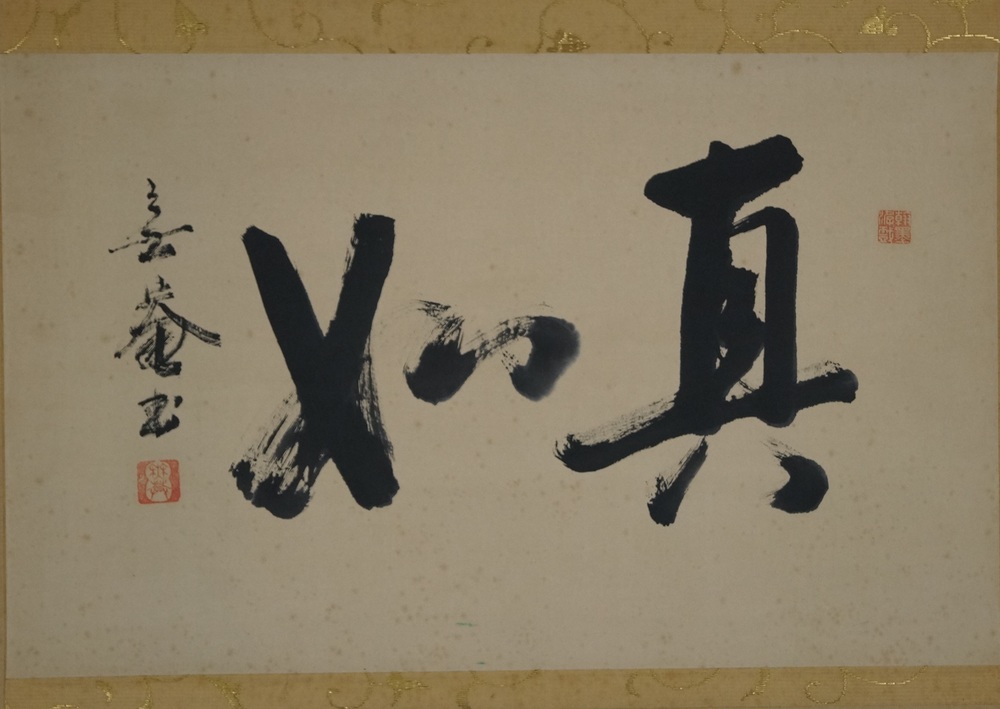 真如
無庵書